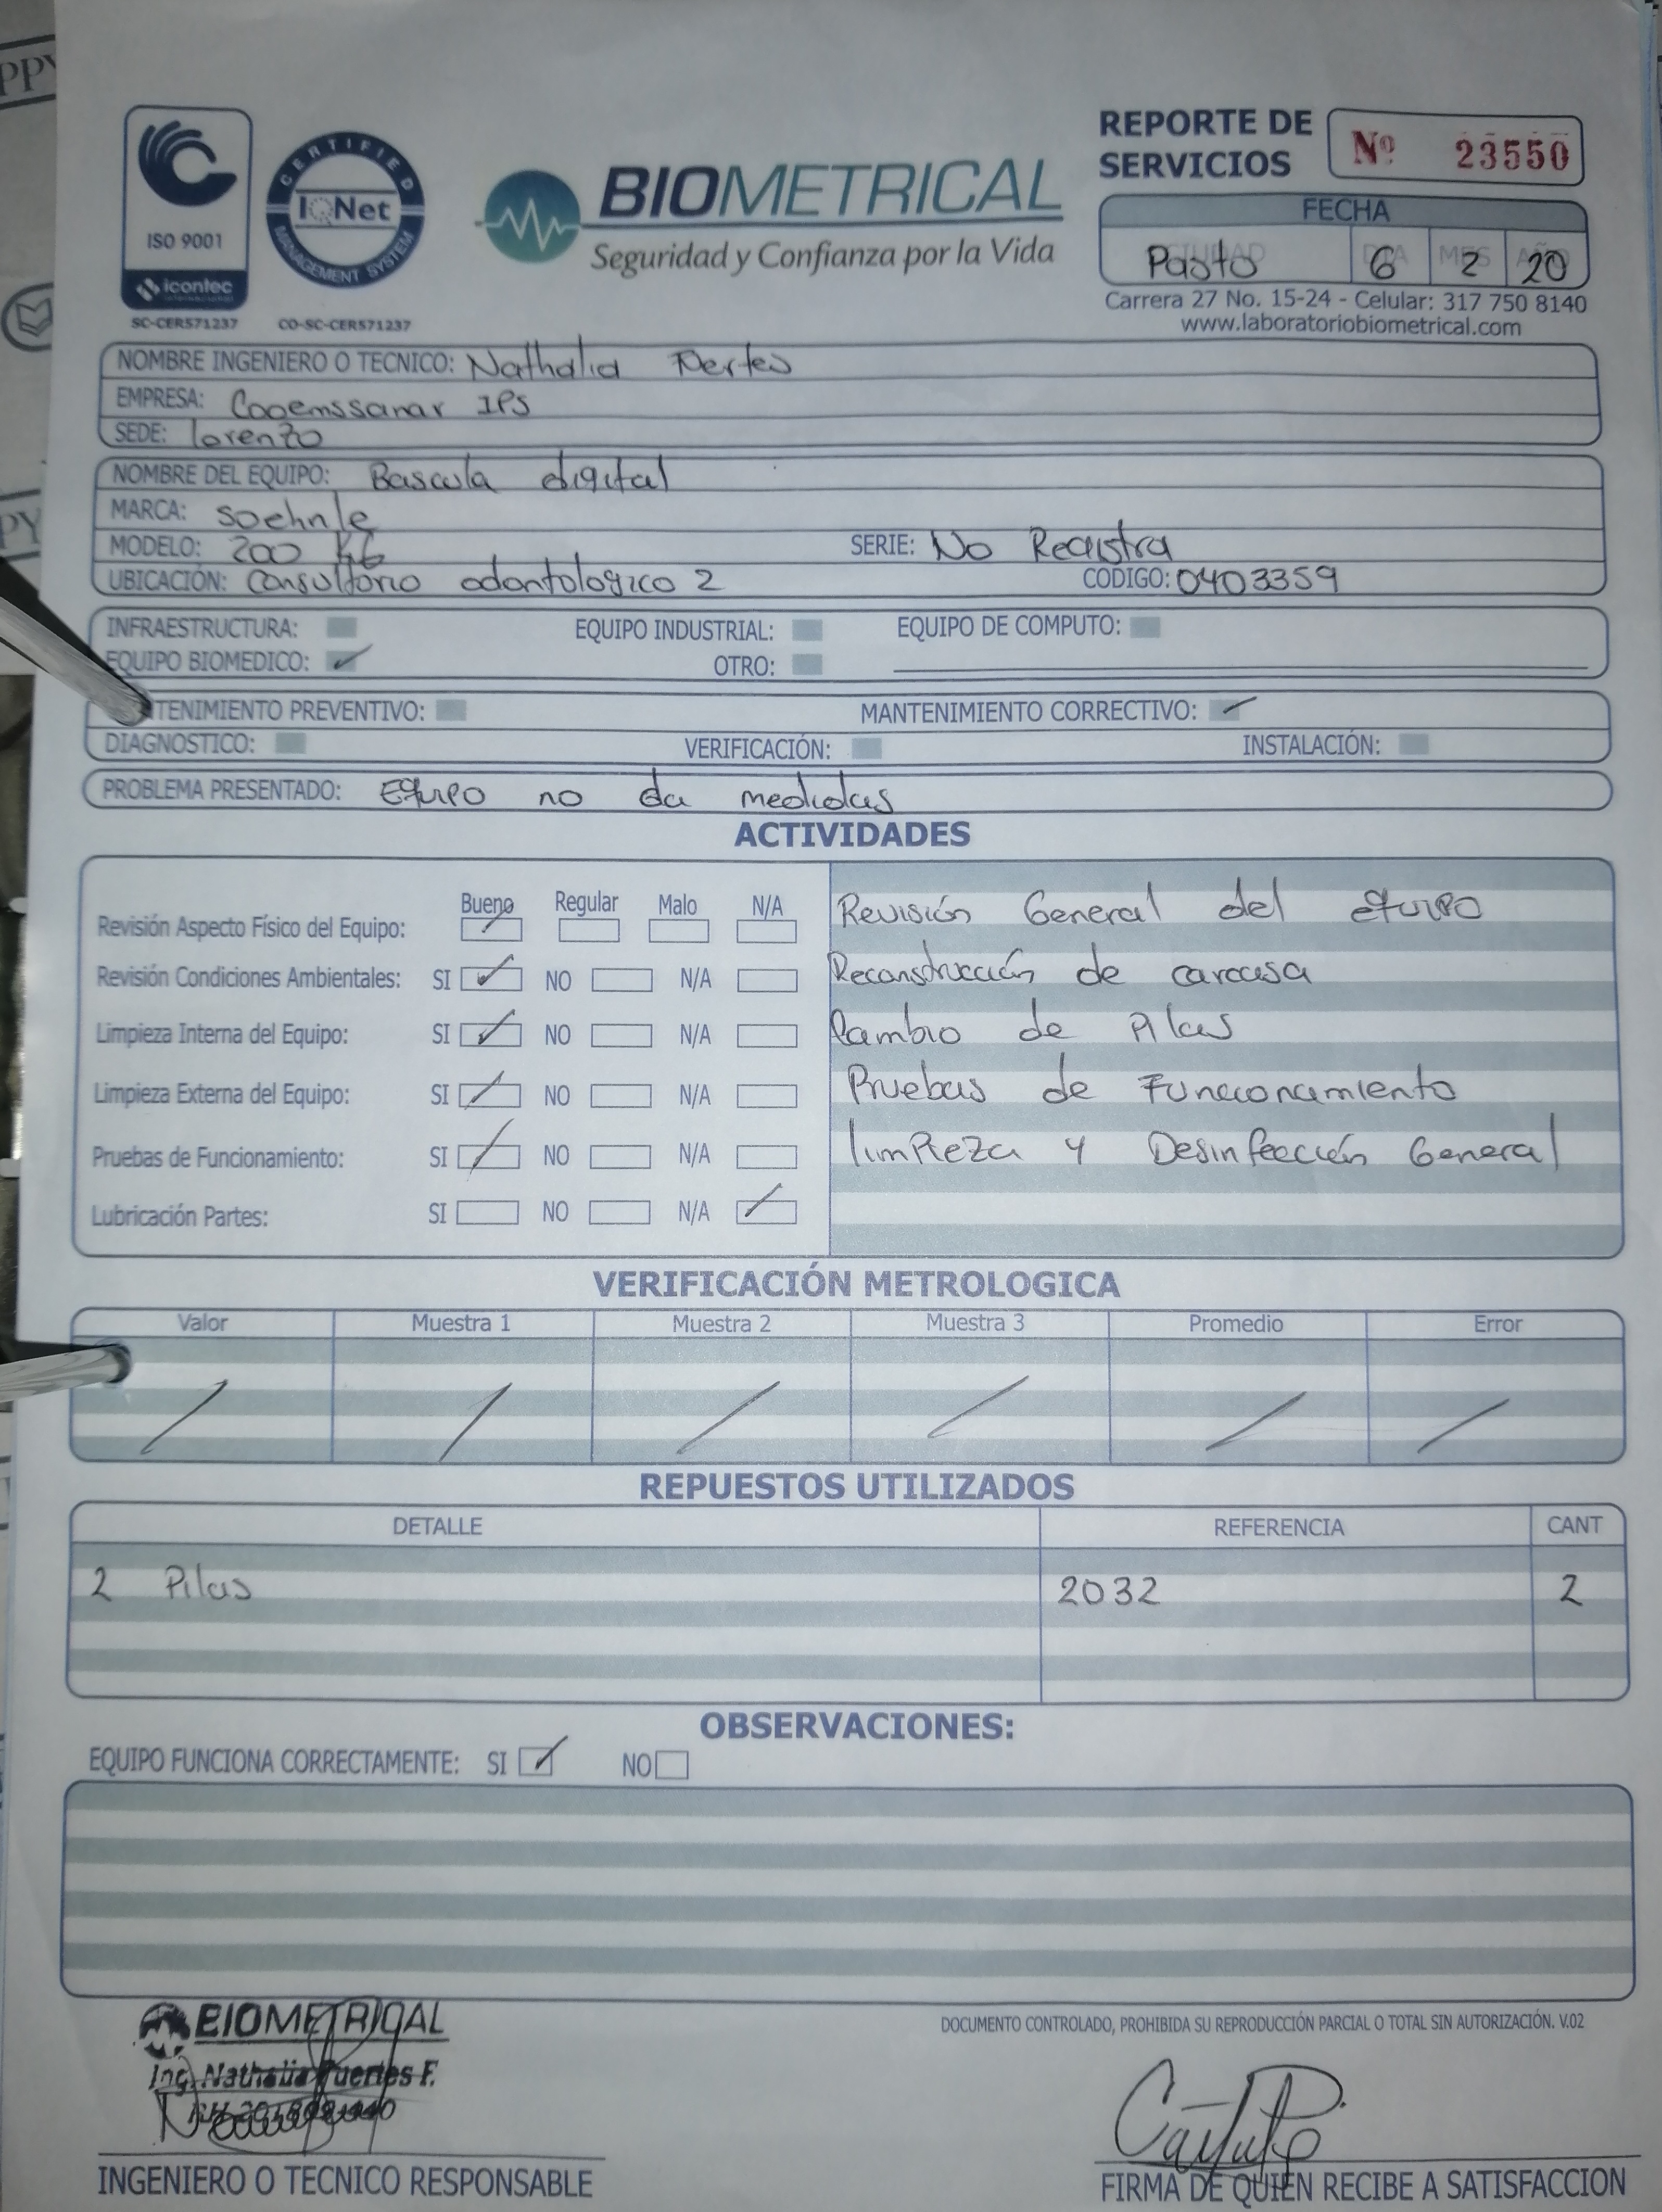 REPORTE DE SERVICIOS
Nº 23550
ISO 9001
icontec
internacional
SC-CER571237
CERTIFIED
IQNet
MANAGEMENT SYSTEM
CO-SC-CER571237
BIOMETRICAL
Seguridad y Confianza por la Vida
FECHA
CIUDAD DIA MES AÑO
Pasto 6 2 20
Carrera 27 No. 15-24 - Celular: 317 750 8140
www.laboratoriobiometrical.com
NOMBRE INGENIERO O TECNICO: Nathalia
EMPRESA: Cooemssanar IPS
SEDE: lorenzo
NOMBRE DEL EQUIPO: Bascula digital
MARCA: soehnle
MODELO: 200 KG SERIE: No Registra
UBICACIÓN: Consultorio odontologico 2 CODIGO: 0403359
INFRAESTRUCTURA: EQUIPO INDUSTRIAL: EQUIPO DE COMPUTO:
EQUIPO BIOMEDICO: ✓ OTRO:
TENIMIENTO PREVENTIVO: MANTENIMIENTO CORRECTIVO: ✓
DIAGNOSTICO: VERIFICACIÓN: INSTALACIÓN:
PROBLEMA PRESENTADO: Equipo no da medidas
ACTIVIDADES
Bueno Regular Malo N/A
Revisión Aspecto Físico del Equipo:
Revisión Condiciones Ambientales: SI ✓ NO N/A
Limpieza Interna del Equipo: SI ✓ NO N/A
Limpieza Externa del Equipo: SI / NO N/A
Pruebas de Funcionamiento: SI / NO N/A
Lubricación Partes: SI NO N/A /
Revisión General del equipo
Reconstrucción de carcasa
Cambio de Pilas
Pruebas de Funcionamiento
limpieza y Desinfección General
VERIFICACIÓN METROLOGICA
Valor Muestra 1 Muestra 2 Muestra 3 Promedio Error
/ / / / / /
REPUESTOS UTILIZADOS
DETALLE REFERENCIA CANT
2 Pilas 2032 2
OBSERVACIONES:
EQUIPO FUNCIONA CORRECTAMENTE: SI ✓ NO
BIOMETRICAL
Ing. Nathalia Fuertes F.
DOCUMENTO CONTROLADO, PROHIBIDA SU REPRODUCCIÓN PARCIAL O TOTAL SIN AUTORIZACIÓN. V.02
INGENIERO O TECNICO RESPONSABLE
FIRMA DE QUIEN RECIBE A SATISFACCION